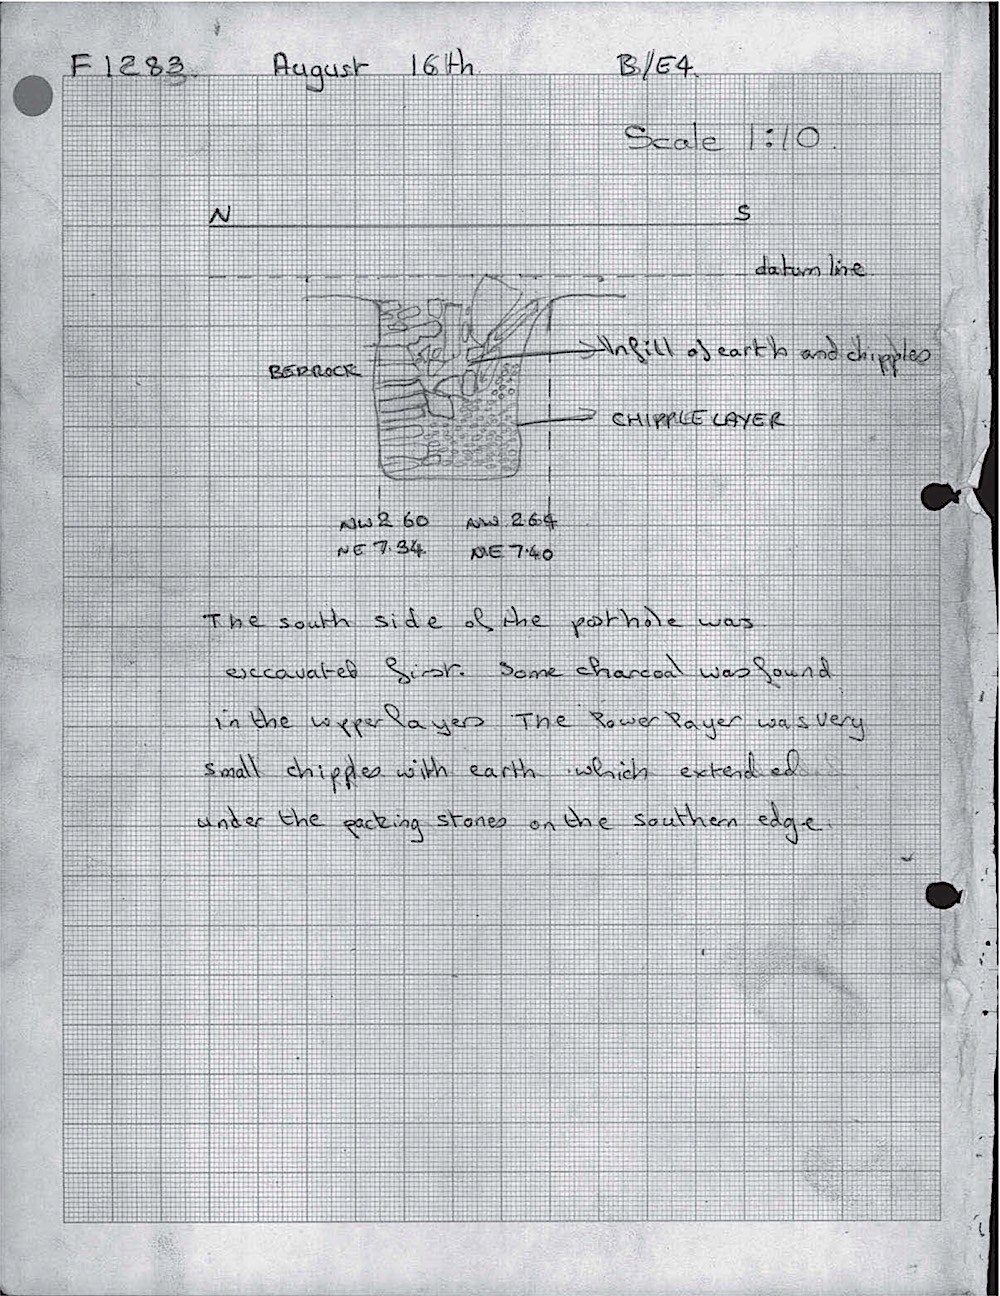 F1283. August 16th. B/E4.
Scale 1:10.
N S
datum line
Infill of earth and chipples
BEDROCK
CHIPPLE LAYER
NW 2 60 NW 2 64
NE 7.34 NE 7.40
The south side of the posthole was
excavated first. Some charcoal was found
in the upper layers The lower layer was very
small chipples with earth which extended
under the packing stones on the southern edge.